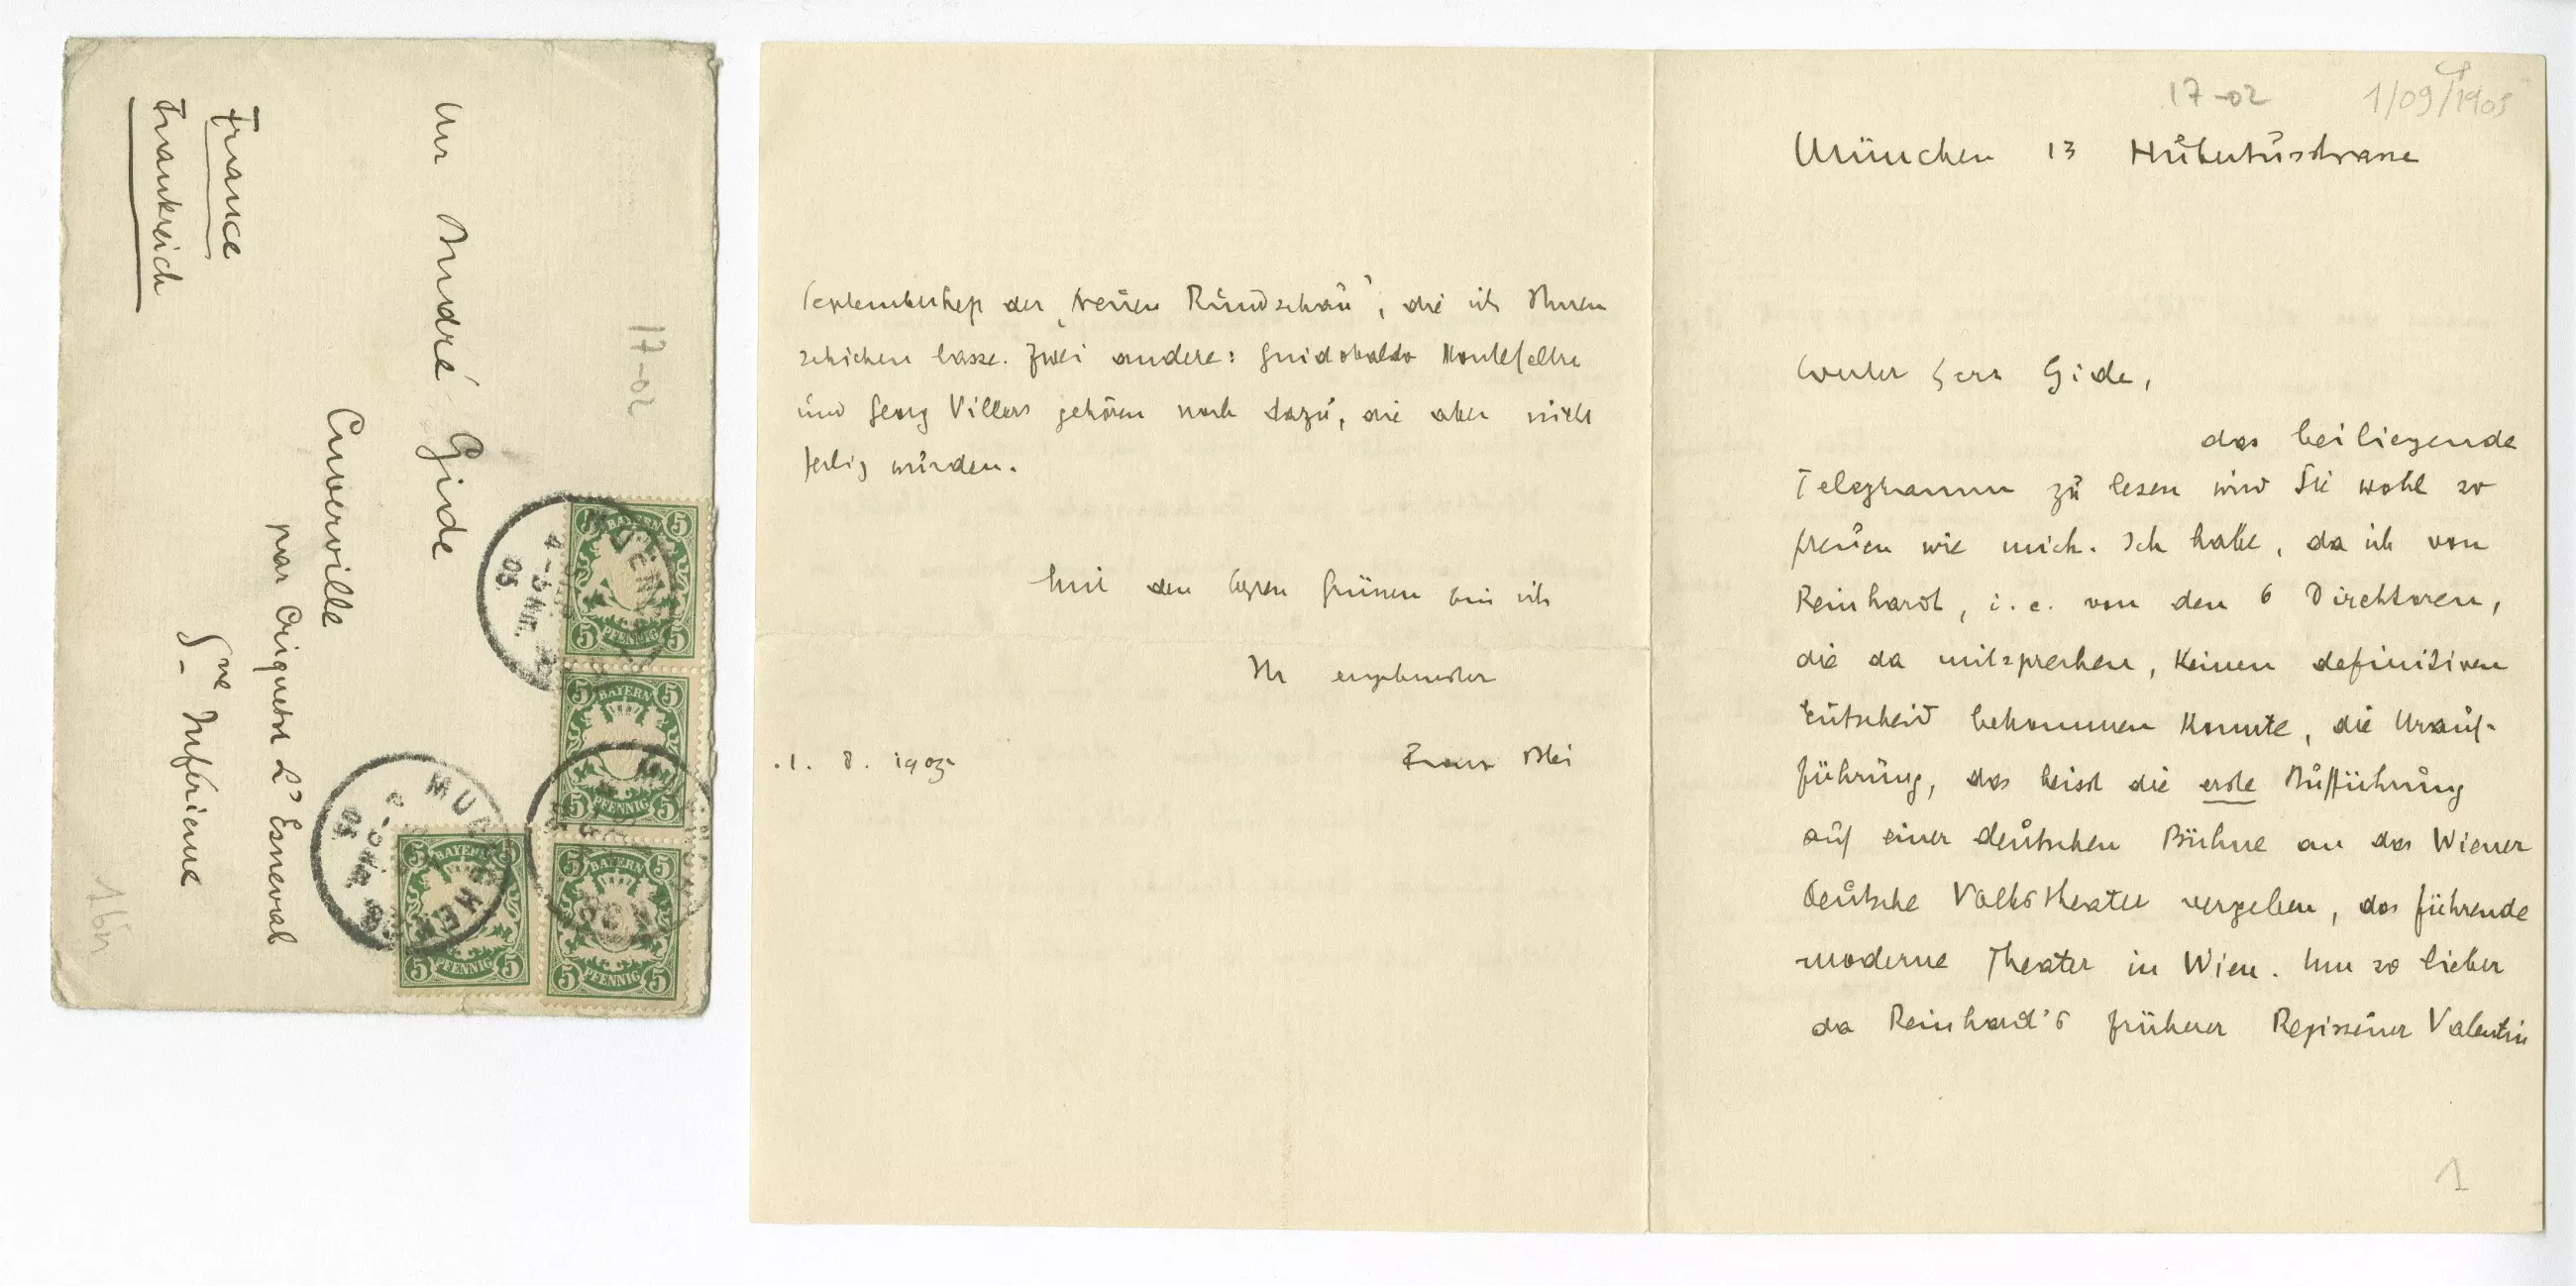 Mr André Gide
Cuverville
par Criquetot L'Esneval
Sne Inférieure
France
Frankreich
17-02
BAYERN
5 5
PFENNIG
5 5
BAYERN
5 5
PFENNIG
5 5
BAYERN
5 5
PFENNIG
5 5
BAYERN
5 5
PFENNIG
5 5
17-02
1/09/1905
München 13 Hubertusstrasse
Werter Herr Gide,
das beiliegende
Telegramm zu lesen wird Sie wohl so
freuen wie mich. Ich habe, da ich von
Reinhardt, i. e. von den 6 Direktoren,
die da mitsprechen, keinen definitiven
Entscheid bekommen konnte, die Urauf-
führung, das heisst die erste Aufführung
auf einer deutschen Bühne an das Wiener
deutsche Volkstheater vergeben, das führende
moderne Theater in Wien. Um so lieber
da Reinhard's früherer Regisseur Valentin
1
Septemberheft der „Neuen Rundschau", die ich Ihnen
schicken lasse. Zwei andere: Guidobaldo Montefeltre
und Georg Villers gehören noch dazu, die aber nicht
fertig wurden.
Mit den besten Grüssen bin ich
Ihr ergebenster
Franz Blei
1. 8. 1905